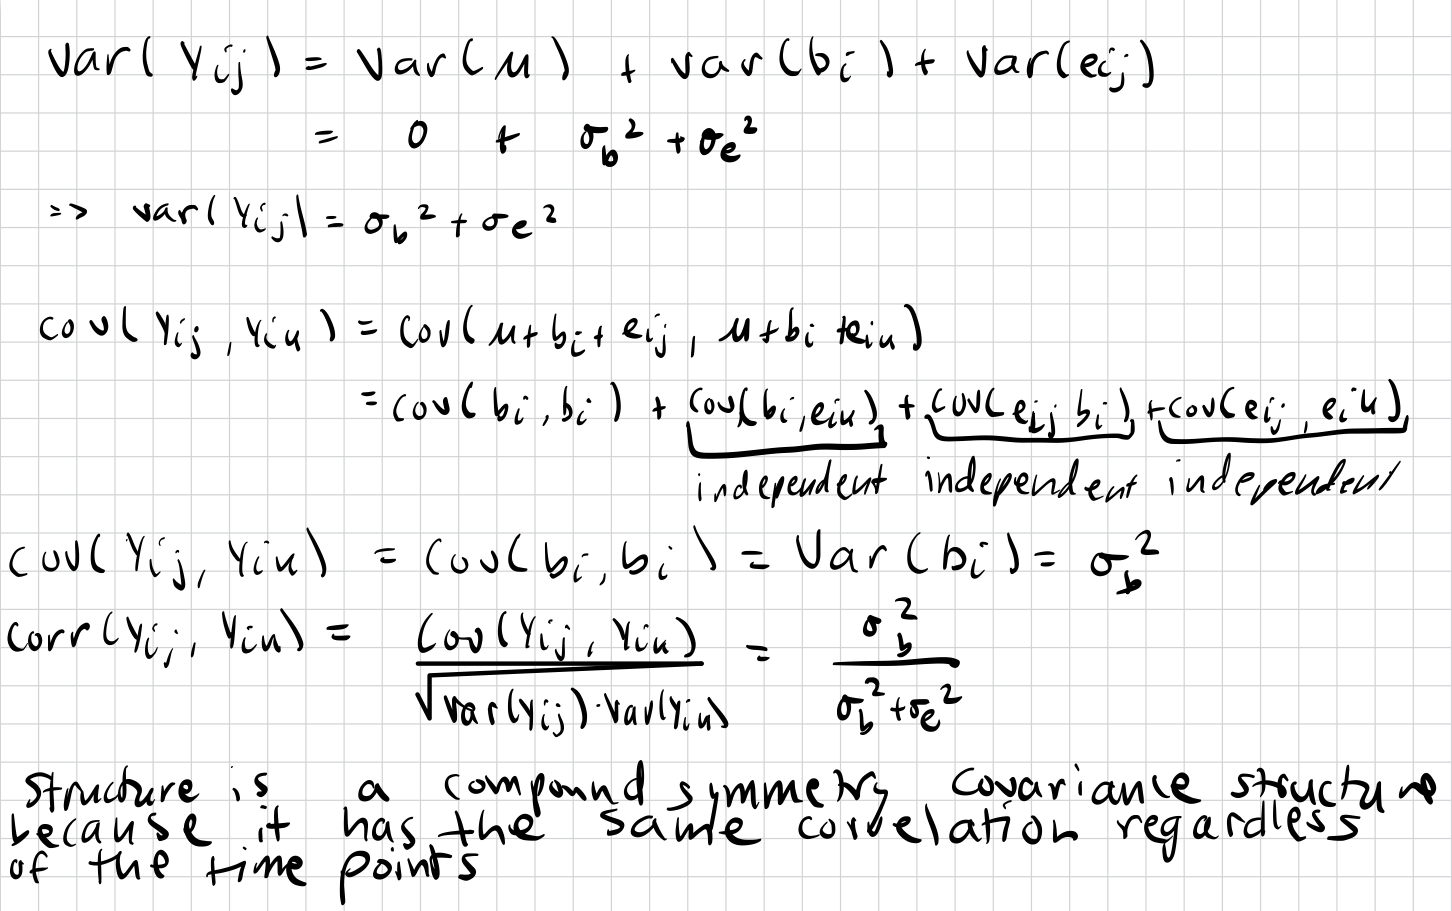 var(Yij) = Var(μ) + var(bi) + Var(eij)
= 0 + σb² + σe²
=> var(Yij) = σb² + σe²
cov(Yij, Yik) = Cov(μ + bi + eij, μ + bi + eik)
= cov(bi, bi) + cov(bi, eik) + cov(eij bi) + cov(eij, eik)
independent independent independent
cov(Yij, Yik) = Cov(bi, bi) = Var(bi) = σb²
corr(Yij, Yik) = Cov(Yij, Yik) / √var(Yij)·Var(Yik) = σb² / σb² + σe²
structure is a compound symmetry covariance structure
because it has the same correlation regardless
of the time points